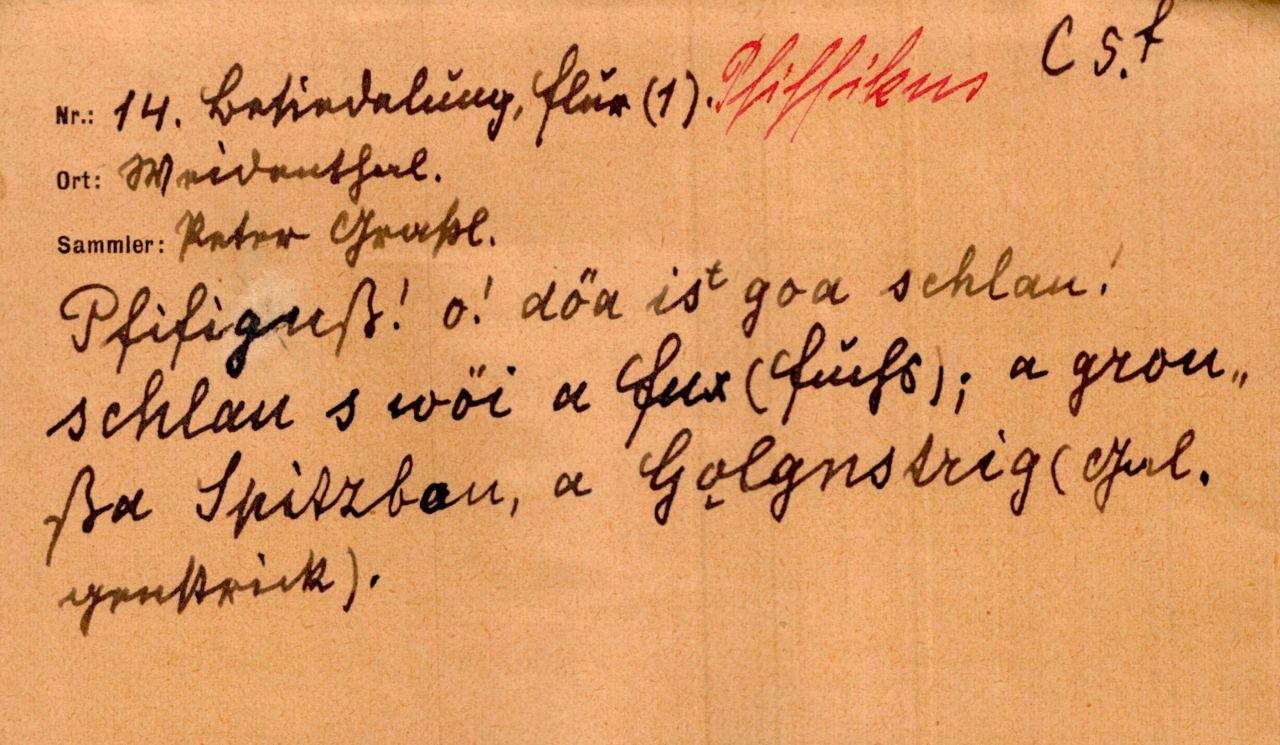 C 5. f
Nr.: 14. Besiedelung, Flur (1). Pfiffikus
Ort: Weidenthal.
Sammler: Peter Graßl.
Pfifignß! o! döa ist goa schlau!
schlau s wöi a Fux (Fuchs); a grou„
ßa Spitzbou, a Gọlgnstrig (Gal.
genstrick).